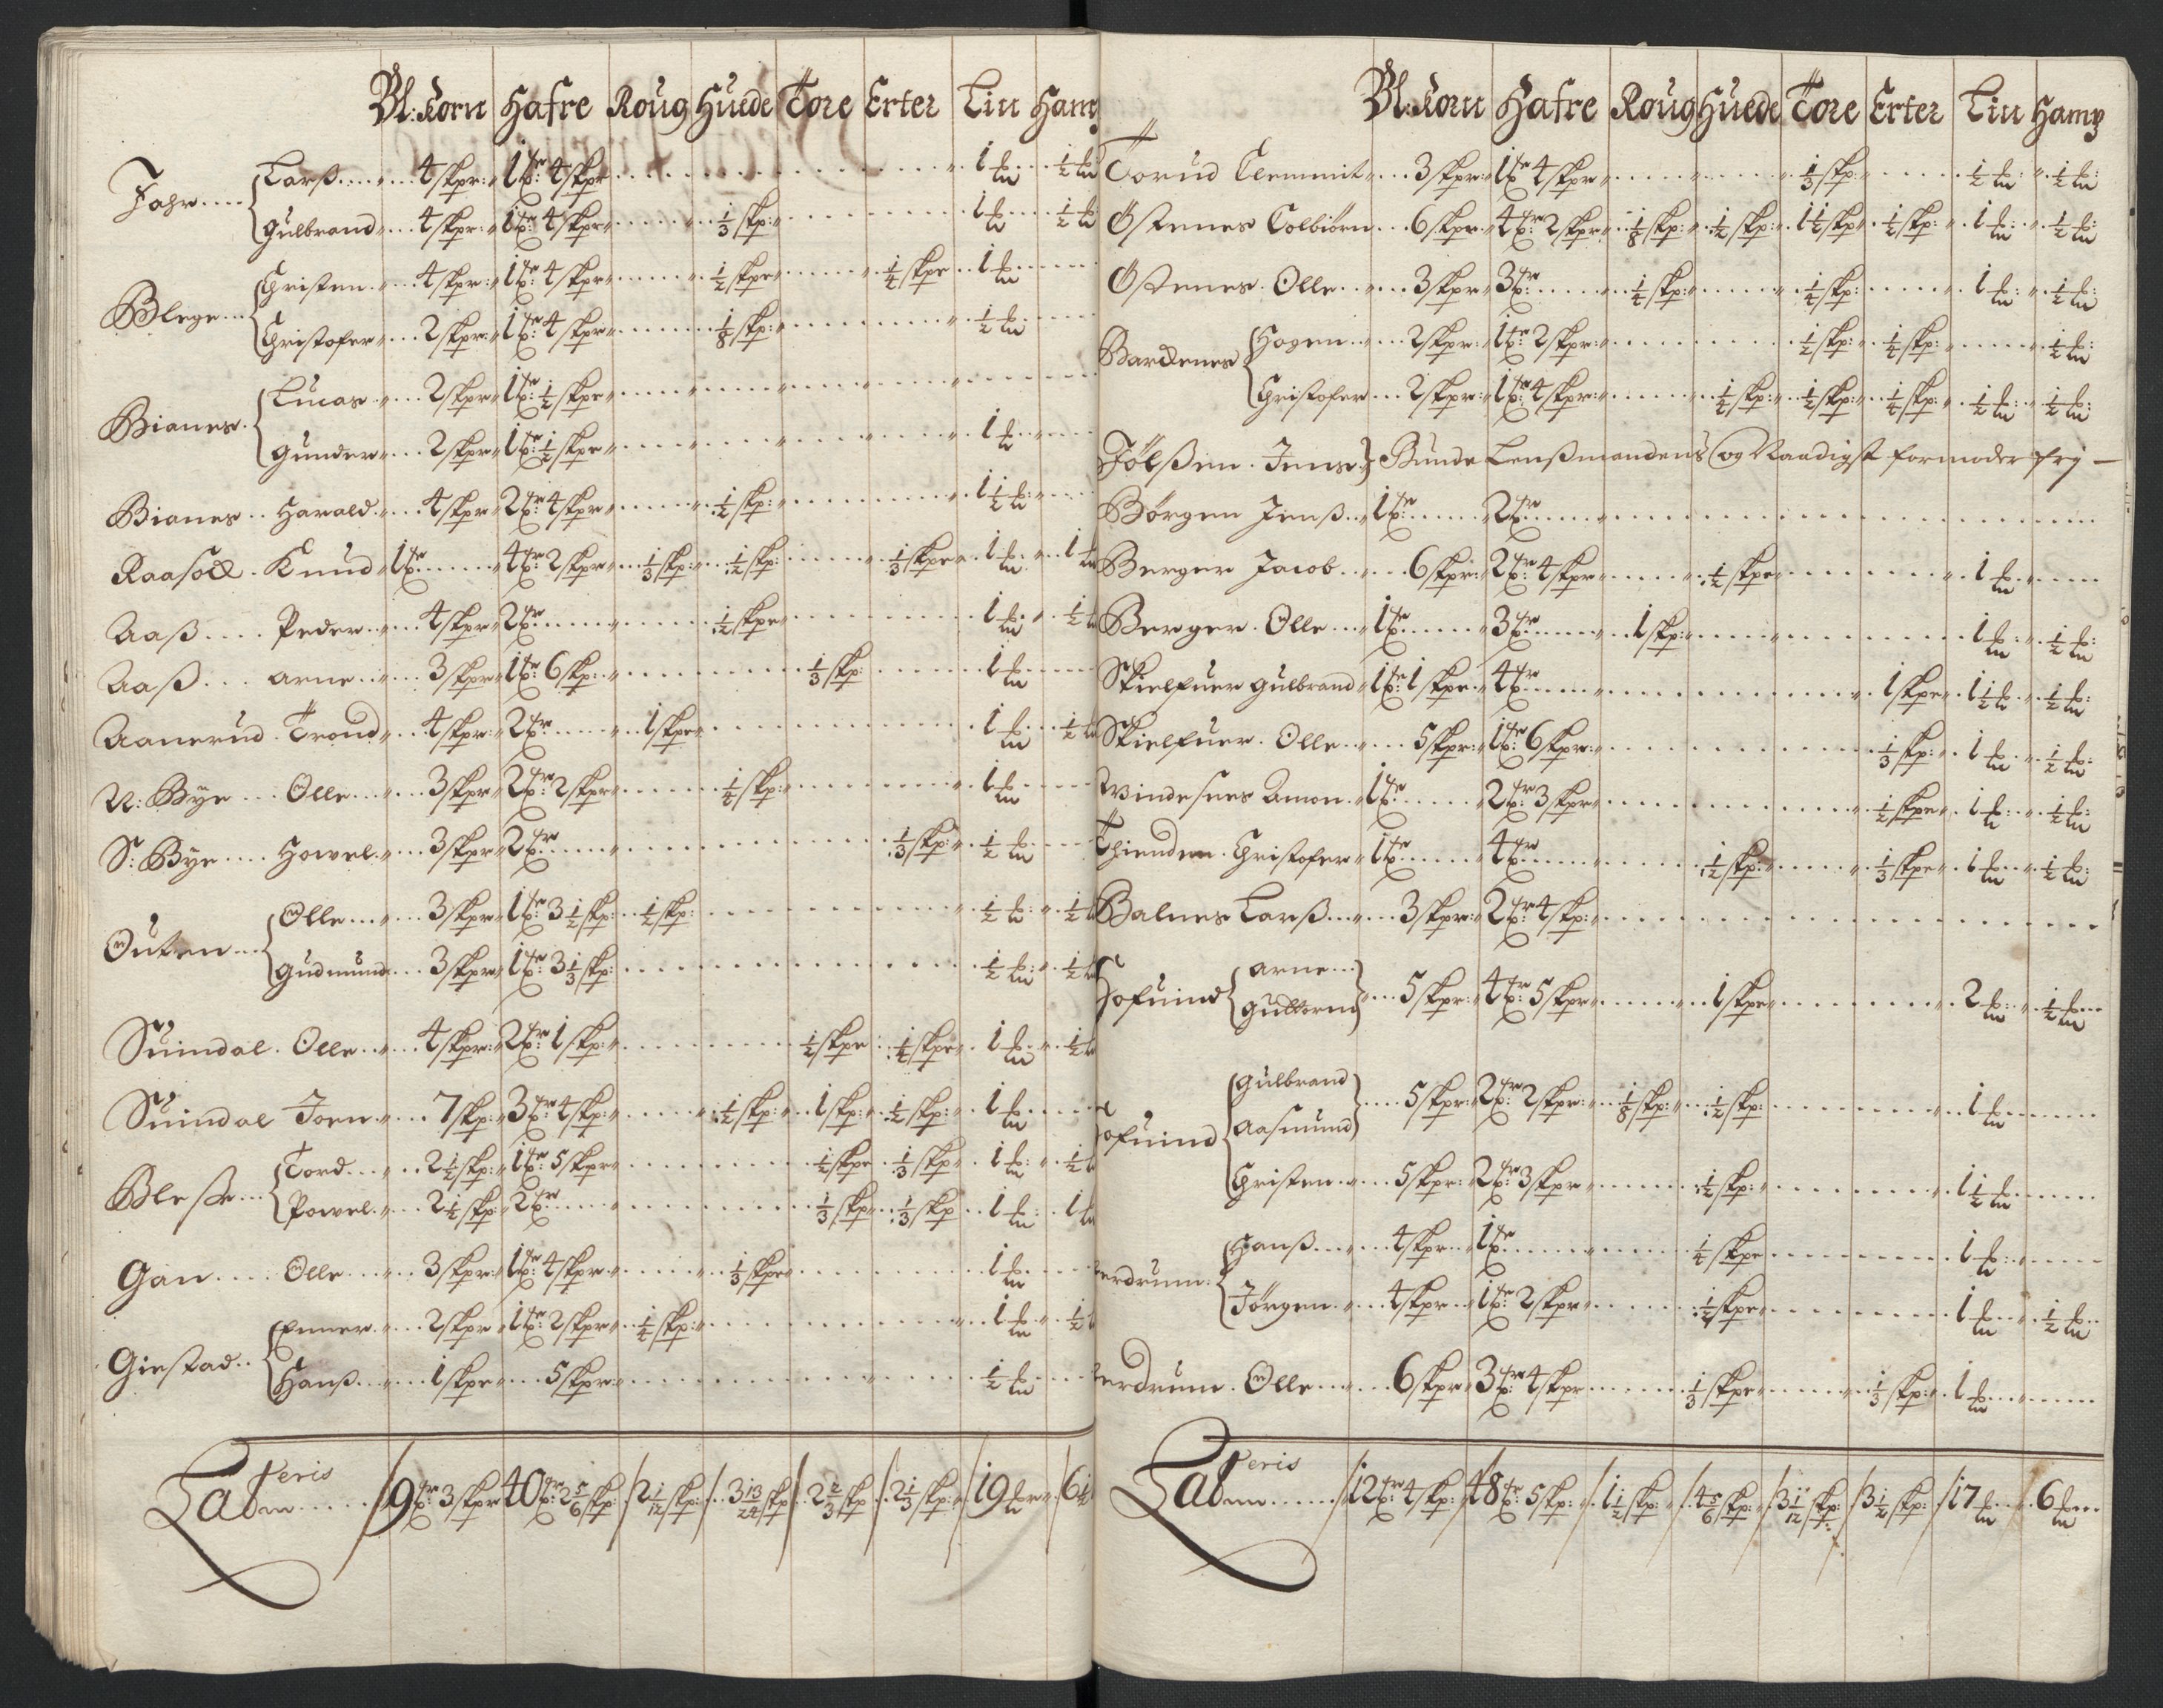 Bl: Korn Hafre Roug Huede Tore Erter Lin Hamp
Fahr Larß 4 skpr: 1 tr: 4 skpr 1 lu ½ lu
Gulbrand 4 skpr: 1 tr: 4 skpr ⅓ skp: 1 lu ½ lu
Blege Christen 4 skpr: 1 tr: 4 skpr ½ skpe ¼ skpe 1 lu
Christofer 2 skpr: 1 tr: 4 skpr ⅛ skp: ½ lu
Bianes Lucas 2 skpr 1 tr: ½ skpe
Gunder 2 skpr 1 tr: ½ skpe 1 lu
Bianes Harald 4 skpr 2 tr: 4 skpr ½ skp: 1½ lu
Raasock Knud 1 tr 4 tr: 2 skpr ⅓ skp: ½ skp: ⅓ skpe 1 lu 1 lu
Aaß Peder 4 skpr 2 tr ½ skpe 1 lu ½ lu
Aaß Arne 3 skpr 1 tr: 6 skp: ⅓ skp: 1 lu
Aanerud Trond 4 skpr: 2 tr 1 skpe 1 lu ½ lu
N: Bye Olle 3 skpr 2 tr: 2 skpr ¼ skp: 1 lu
S: Bye Howel 3 skpr 2 tr ⅓ skp: ½ lu
Outen Olle 3 skpr 1 tr: 3½ skp: ½ skp: ½ lu ½
Gudmund 3 skpr 1 tr: 3⅓ skp: ½ lu ½
Suindal Olle 4 skpr: 2 tr: 1 skp: ½ skpe ¼ skpe 1 lu ½
Suindal Joen 7 skp: 3 tr: 4 skp: ½ skp: 1 skp: ½ skp: 1 lu
Bleße Tord 2½ skp: 1 tr: 5 skpr ½ skpe ⅓ skp: 1 lu ½
Powel 2½ skp: 2 tr ⅓ skp: ⅓ skp 1 lu 1 lu
Gan Olle 3 skpr: 1 tr: 4 skpr ⅓ skpe 1 lu
Giestad Enner 2 skpr 1 tr: 2 skpr ¼ skp: 1 lu ½
Hanß 1 skpe 5 skpr: ½ lu
Lateris 9 tr: 3 skpr 40 tr: 2⅚ skp: 2 1/12 skp: 3 13/24 skp 2⅔ skp 2⅓ skp: 19 lu 6½
Bl: Korn Hafre Roug Huede Tore Erter Lin Hamp
Torud Clemmit 3 skpr: 1 tr 4 skpr ⅓ skp: ½ lu ½ lu
Østenes Tolbiørn 6 skpr 4 tr: 2 skpr ⅛ skp: ½ skp: 1½ skp ½ skp: 1 lu ½ lu
Østenes Olle 3 skpr 3 tr ¼ skp: ¼ skp: 1 lu ½ lu
Bardenes Hogen 2 skpr: 1 tr 2 skpr: ½ skp: ¼ skp: ½ lu
Christofer 2 skpr: 1 tr 4 skpr: ¼ skp: ½ skp: ¼ skp: ½ lu ½ lu
Jølßen Jens Bunde Lenßmandens og Naadigst formoder frj
Børgen Jenß 1 tr 2 tr
Berger Jacob 6 skpr: 2 tr: 4 skpr ½ skpe 1 lu
Berger Olle 1 tr 3 tr 1 skp: 1 lu ½ lu
Skielfuer Gulbrand 1 tr: 1 skpe 4 tr 1 skpe 1½ lu ½ lu
Skielfuer Olle 5 skpr: 1 tr: 6 skpr: ⅓ skp: 1 lu ½ lu
Windesnes Amon 1 tr 2 tr: 3 skpr ½ skpe 1 lu ½ lu
Thienden Christofer 1 tr 4 tr ½ skp: ⅓ skpe 1 lu ½ lu
Balnes Larß 3 skpr: 2 tr: 4 skp:
Hofuind Arne
Guttorm 5 skpr: 4 tr: 5 skpr 1 skpe 2 lu ½ lu
ofuind Gulbrand
Aasmund 5 skpr: 2 tr: 2 skpr: ⅛ skp: ½ skp: 1 lu
Christen 5 skpr: 2 tr: 3 skpr ½ skp: 1½ lu
erdrum Hanß 4 skpr 1 tr ¼ skpe 1 lu
Jørgen 4 skpr 1 tr: 2 skpr ½ skpe 1 lu ½ lu
erdrum Olle 6 skpr 3 tr: 4 skpr ⅓ skpe ⅓ skp: 1 lu
Lateris 12 tr 4 skp: 48 tr: 5 skp: 1½ skp: 4⅚ skp: 3 11/12 skp: 3½ skp: 17 lu 6 lu